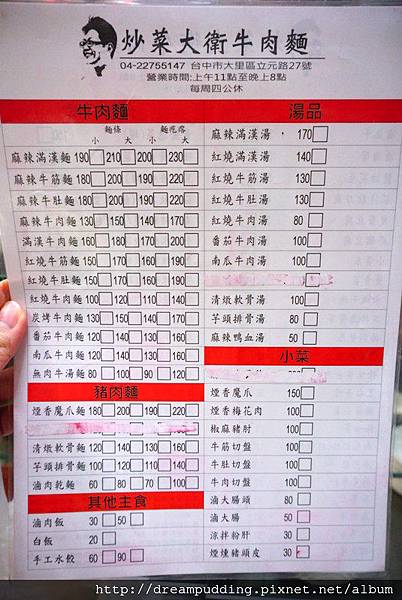 炒菜大衛牛肉麵
04-22755147 台中市大里區立元路27號
營業時間:上午11點至晚上8點
每周四公休
牛肉麵
麵條 麵疙瘩
小 大 小 大
麻辣滿漢麵 190 210 200 230
麻辣牛筋麵 180 200 190 220
麻辣牛肚麵 180 200 190 220
麻辣牛肉麵 130 150 140 170
滿漢牛肉麵 160 180 170 200
紅燒牛筋麵 150 170 160 190
紅燒牛肚麵 150 170 160 190
紅燒牛肉麵 100 120 110 140
炭烤牛肉麵 130 150 140 170
番茄牛肉麵 120 140 130 160
南瓜牛肉麵 120 140 130 160
無肉牛湯麵 80 100 90 120
豬肉麵
煙香魔爪麵 180 200 190 220
清燉軟骨麵 120 140 130 160
芋頭排骨麵 100 120 110 140
滷肉乾麵 60 80 70 100
其他主食
滷肉飯 30 50
白飯 20
手工水餃 60 90
湯品
麻辣滿漢湯 170
紅燒滿漢湯 140
紅燒牛筋湯 130
紅燒牛肚湯 130
紅燒牛肉湯 80
番茄牛肉湯 100
南瓜牛肉湯 100
清燉軟骨湯 100
芋頭排骨湯 80
麻辣鴨血湯 50
小菜
煙香魔爪 150
煙香梅花肉 100
椒麻豬肘 100
牛筋切盤 100
牛肚切盤 100
牛肉切盤 100
滷大腸頭 80
滷大腸 50
涼拌粉肝 30
煙燻豬頭皮 30
http://dreampudding.pixnet.net/album